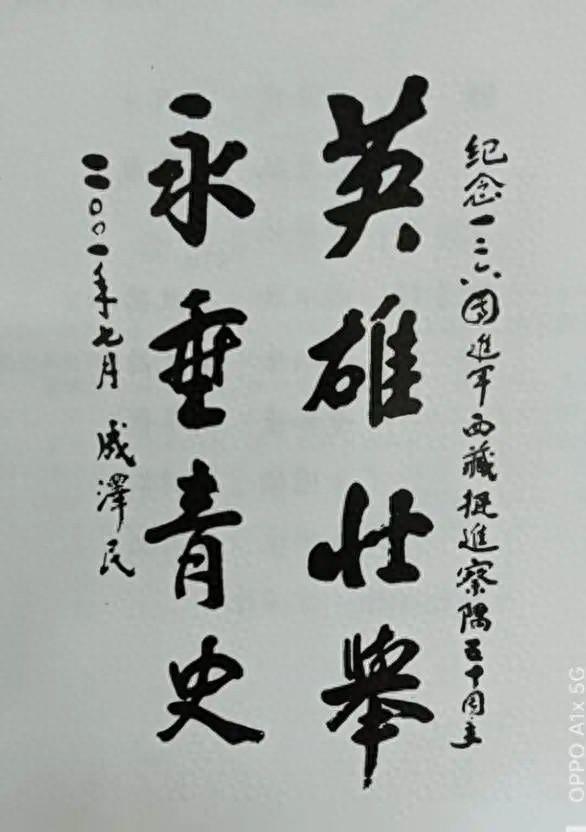 紀念一二六團進军西藏挺進察隅五十周年
英雄壮舉
永垂青史
二〇〇一年七月 成澤民
OPPO A1x 5G